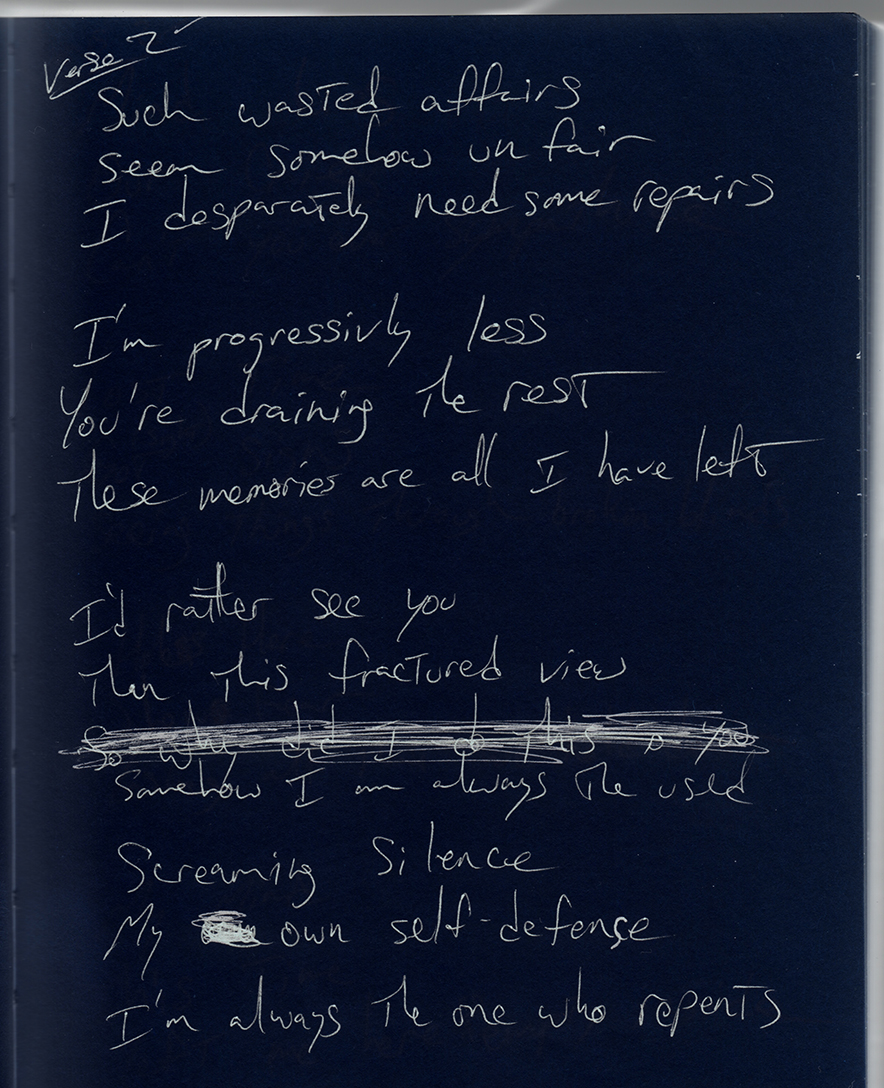 Verse 2
Such wasted affairs
seem somehow unfair
I desparately need some repairs
I'm progressivly less
You're draining the rest
These memories are all I have left
I'd rather see you
Than this fractured view
So why did I do this to you
Somehow I am always the used
Screaming Silence
My own self-defense
I'm always the one who repents